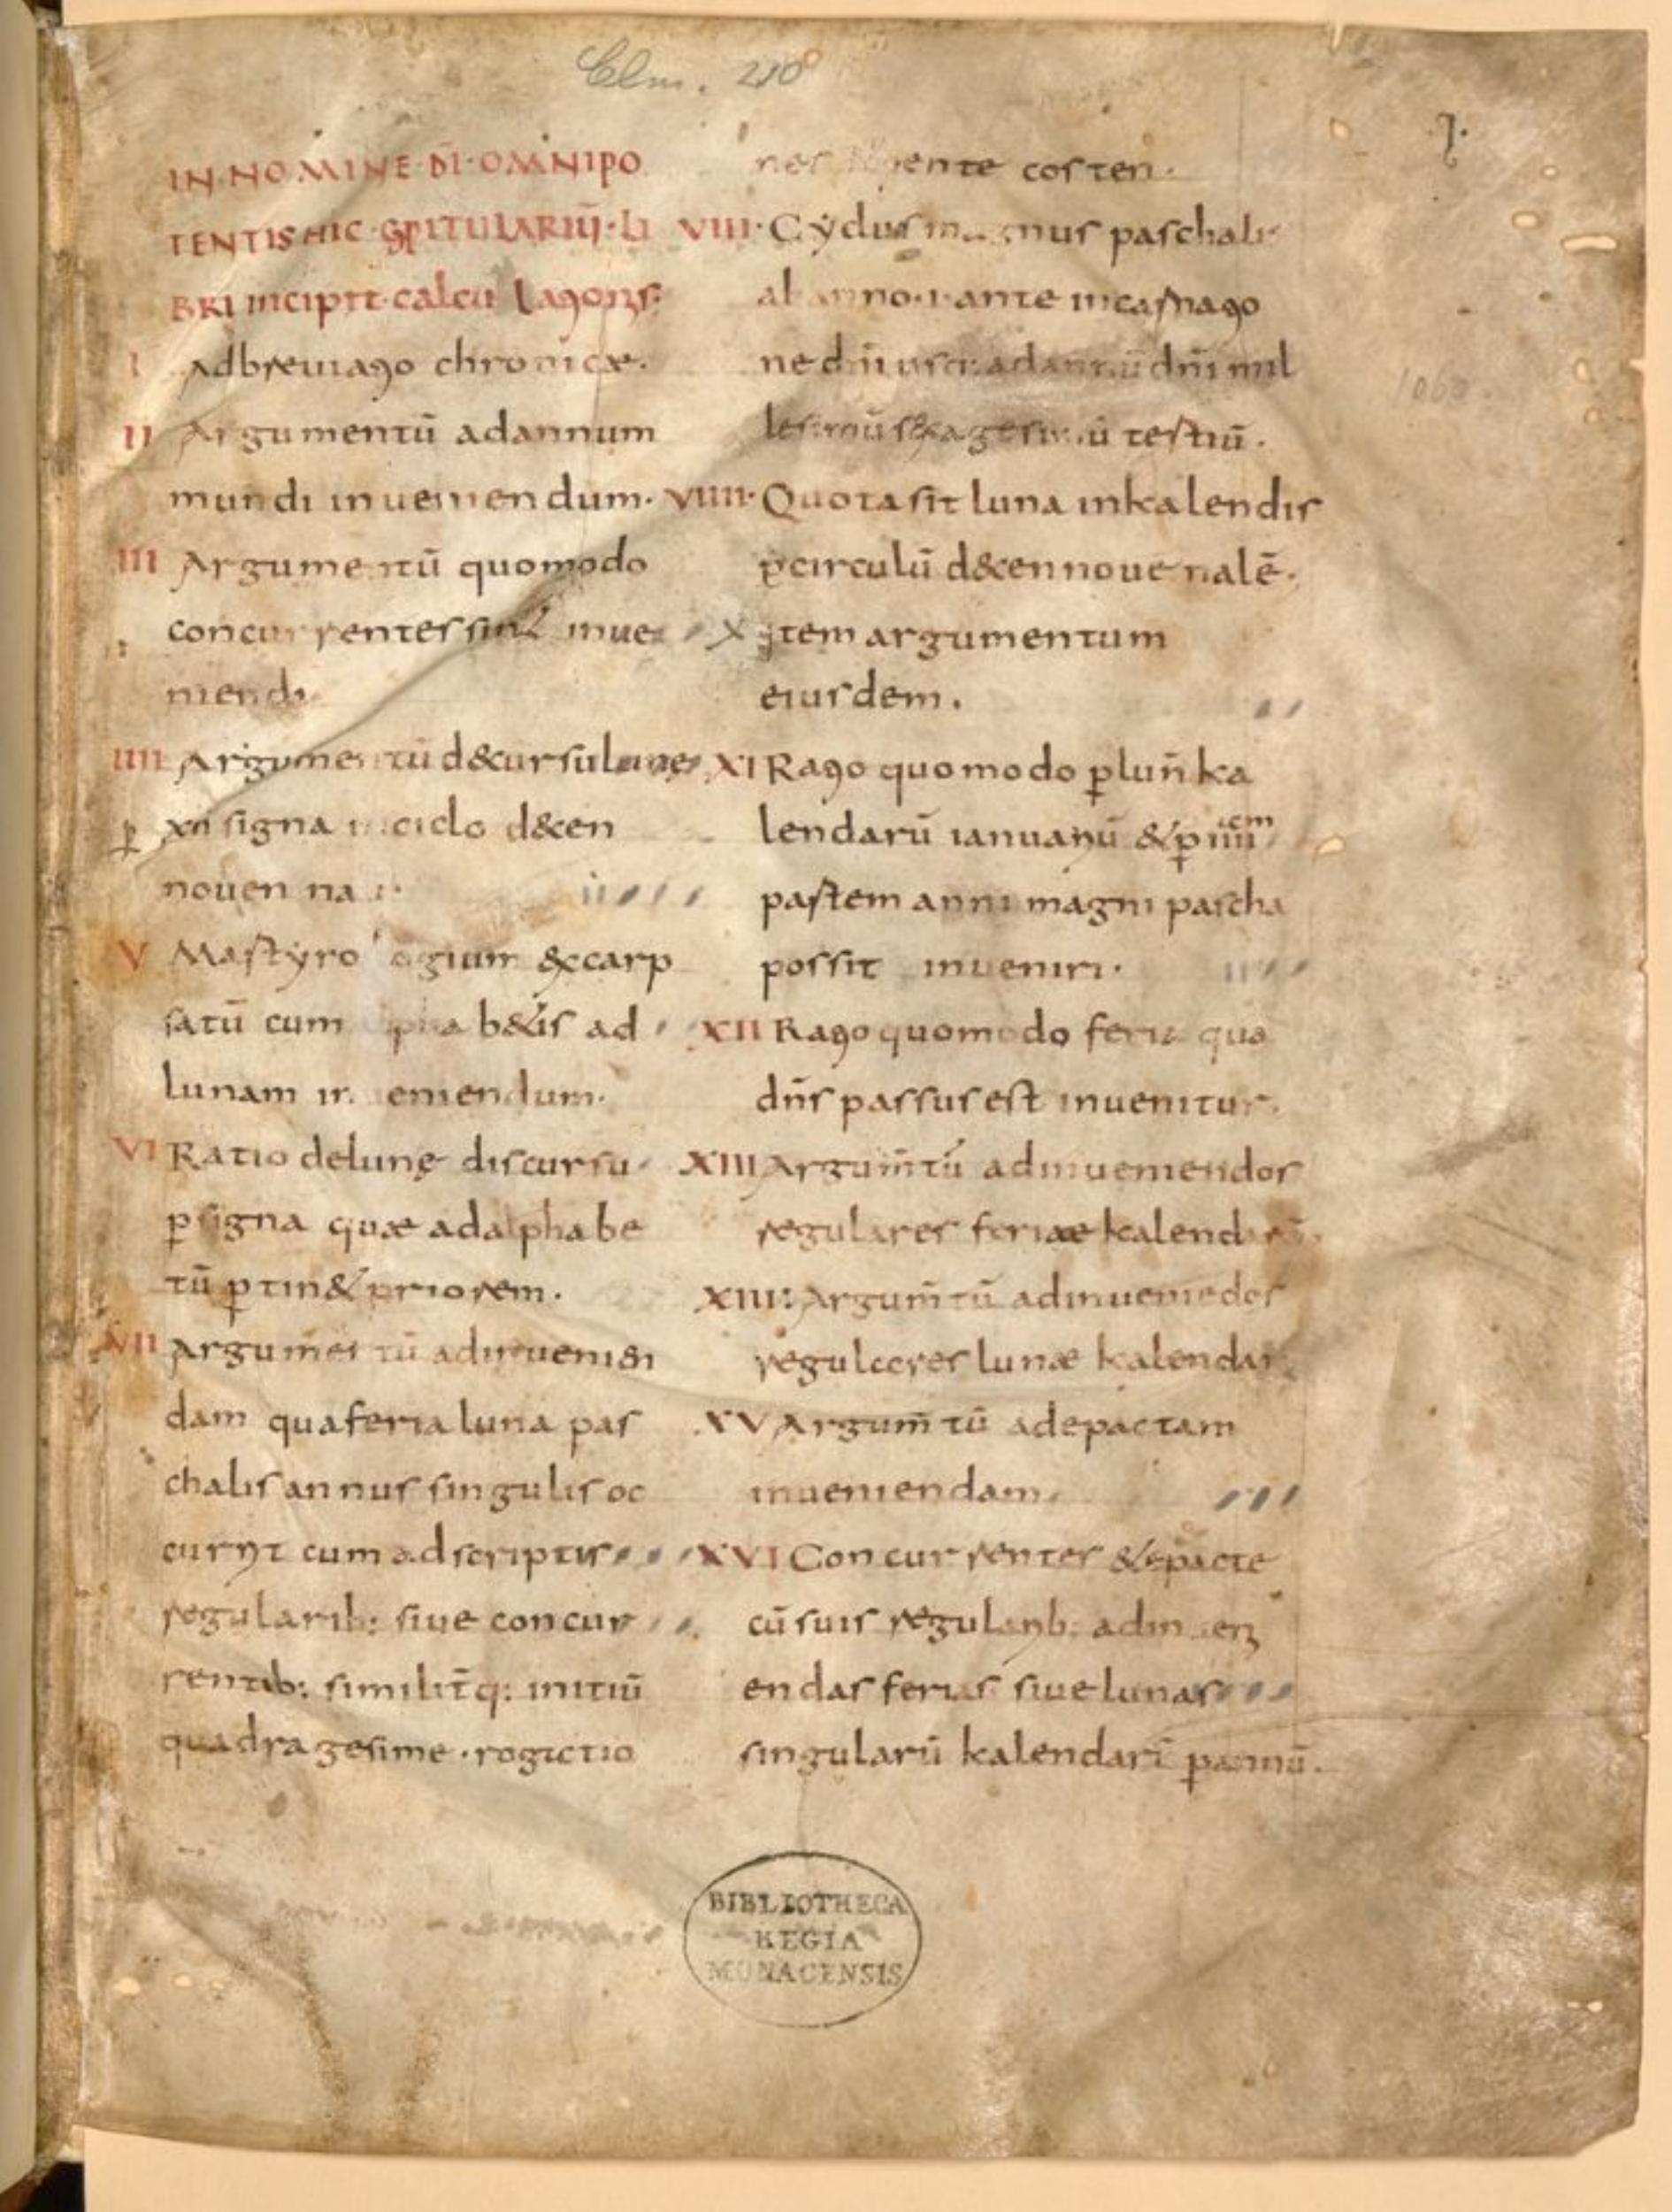 Clm. 210
1.
IN NOMINE DI OMNIPO
TENTIS HIC CAPITULARIŪ LI
BRI incipit calcu lationis
I Adbreuiatio chronicæ.
II Argumentū ad annum
mundi inueniendum.
III Argumentū quomodo
concurrentes sint inue
niendi
IIII Argumentū de cursu lune
ꝑ xii signa in ciclo decen
nouen na
V Martyrologium excarp
satū cum alphabetis ad
lunam inueniendum.
VI Ratio de lunę discursu
ꝑ signa quæ ad alphabe
tū ꝑtinet priorem.
VII Argumentū ad inueniən
dam qua feria luna pas
chalis annus singulis oc
curr̄t cum adscriptis
regularib: siue concur
rentib: similit̄q: initiū
quadragesime. rogictio
nes pente costen.
VIII. Cyclus magnus paschalis
ab anno .i. ante incarnatio
ne dn̄i usq: ad annū dn̄i mil
lesimū sexagesimū tertiū.
VIIII. Quota sit luna in kalendis
ꝑ circulū decennouenalē.
X item argumentum
eiusdem.
XI Ratio quomodo ꝑ lun̄ ka
lendarū ianuariū & ꝑ iiii cm
partem anni magni pascha
possit inueniri.
XII Ratio quomodo feria qua
dn̄s passus est inuenitur.
XIII Argum̄tū ad inueniendos
regulares feriae kalendarū
XIIII. Argum̄tū ad inueniedos
regulares lunæ kalendar
XV Argum̄tū ad epactam
inueniendam.
XVI Concurrentes & epacte
cū suis regularib: ad inueni
endas ferias siue lunas
singularū kalendarū ꝑ annū.
1060.
BIBLIOTHECA
REGIA
MONACENSIS